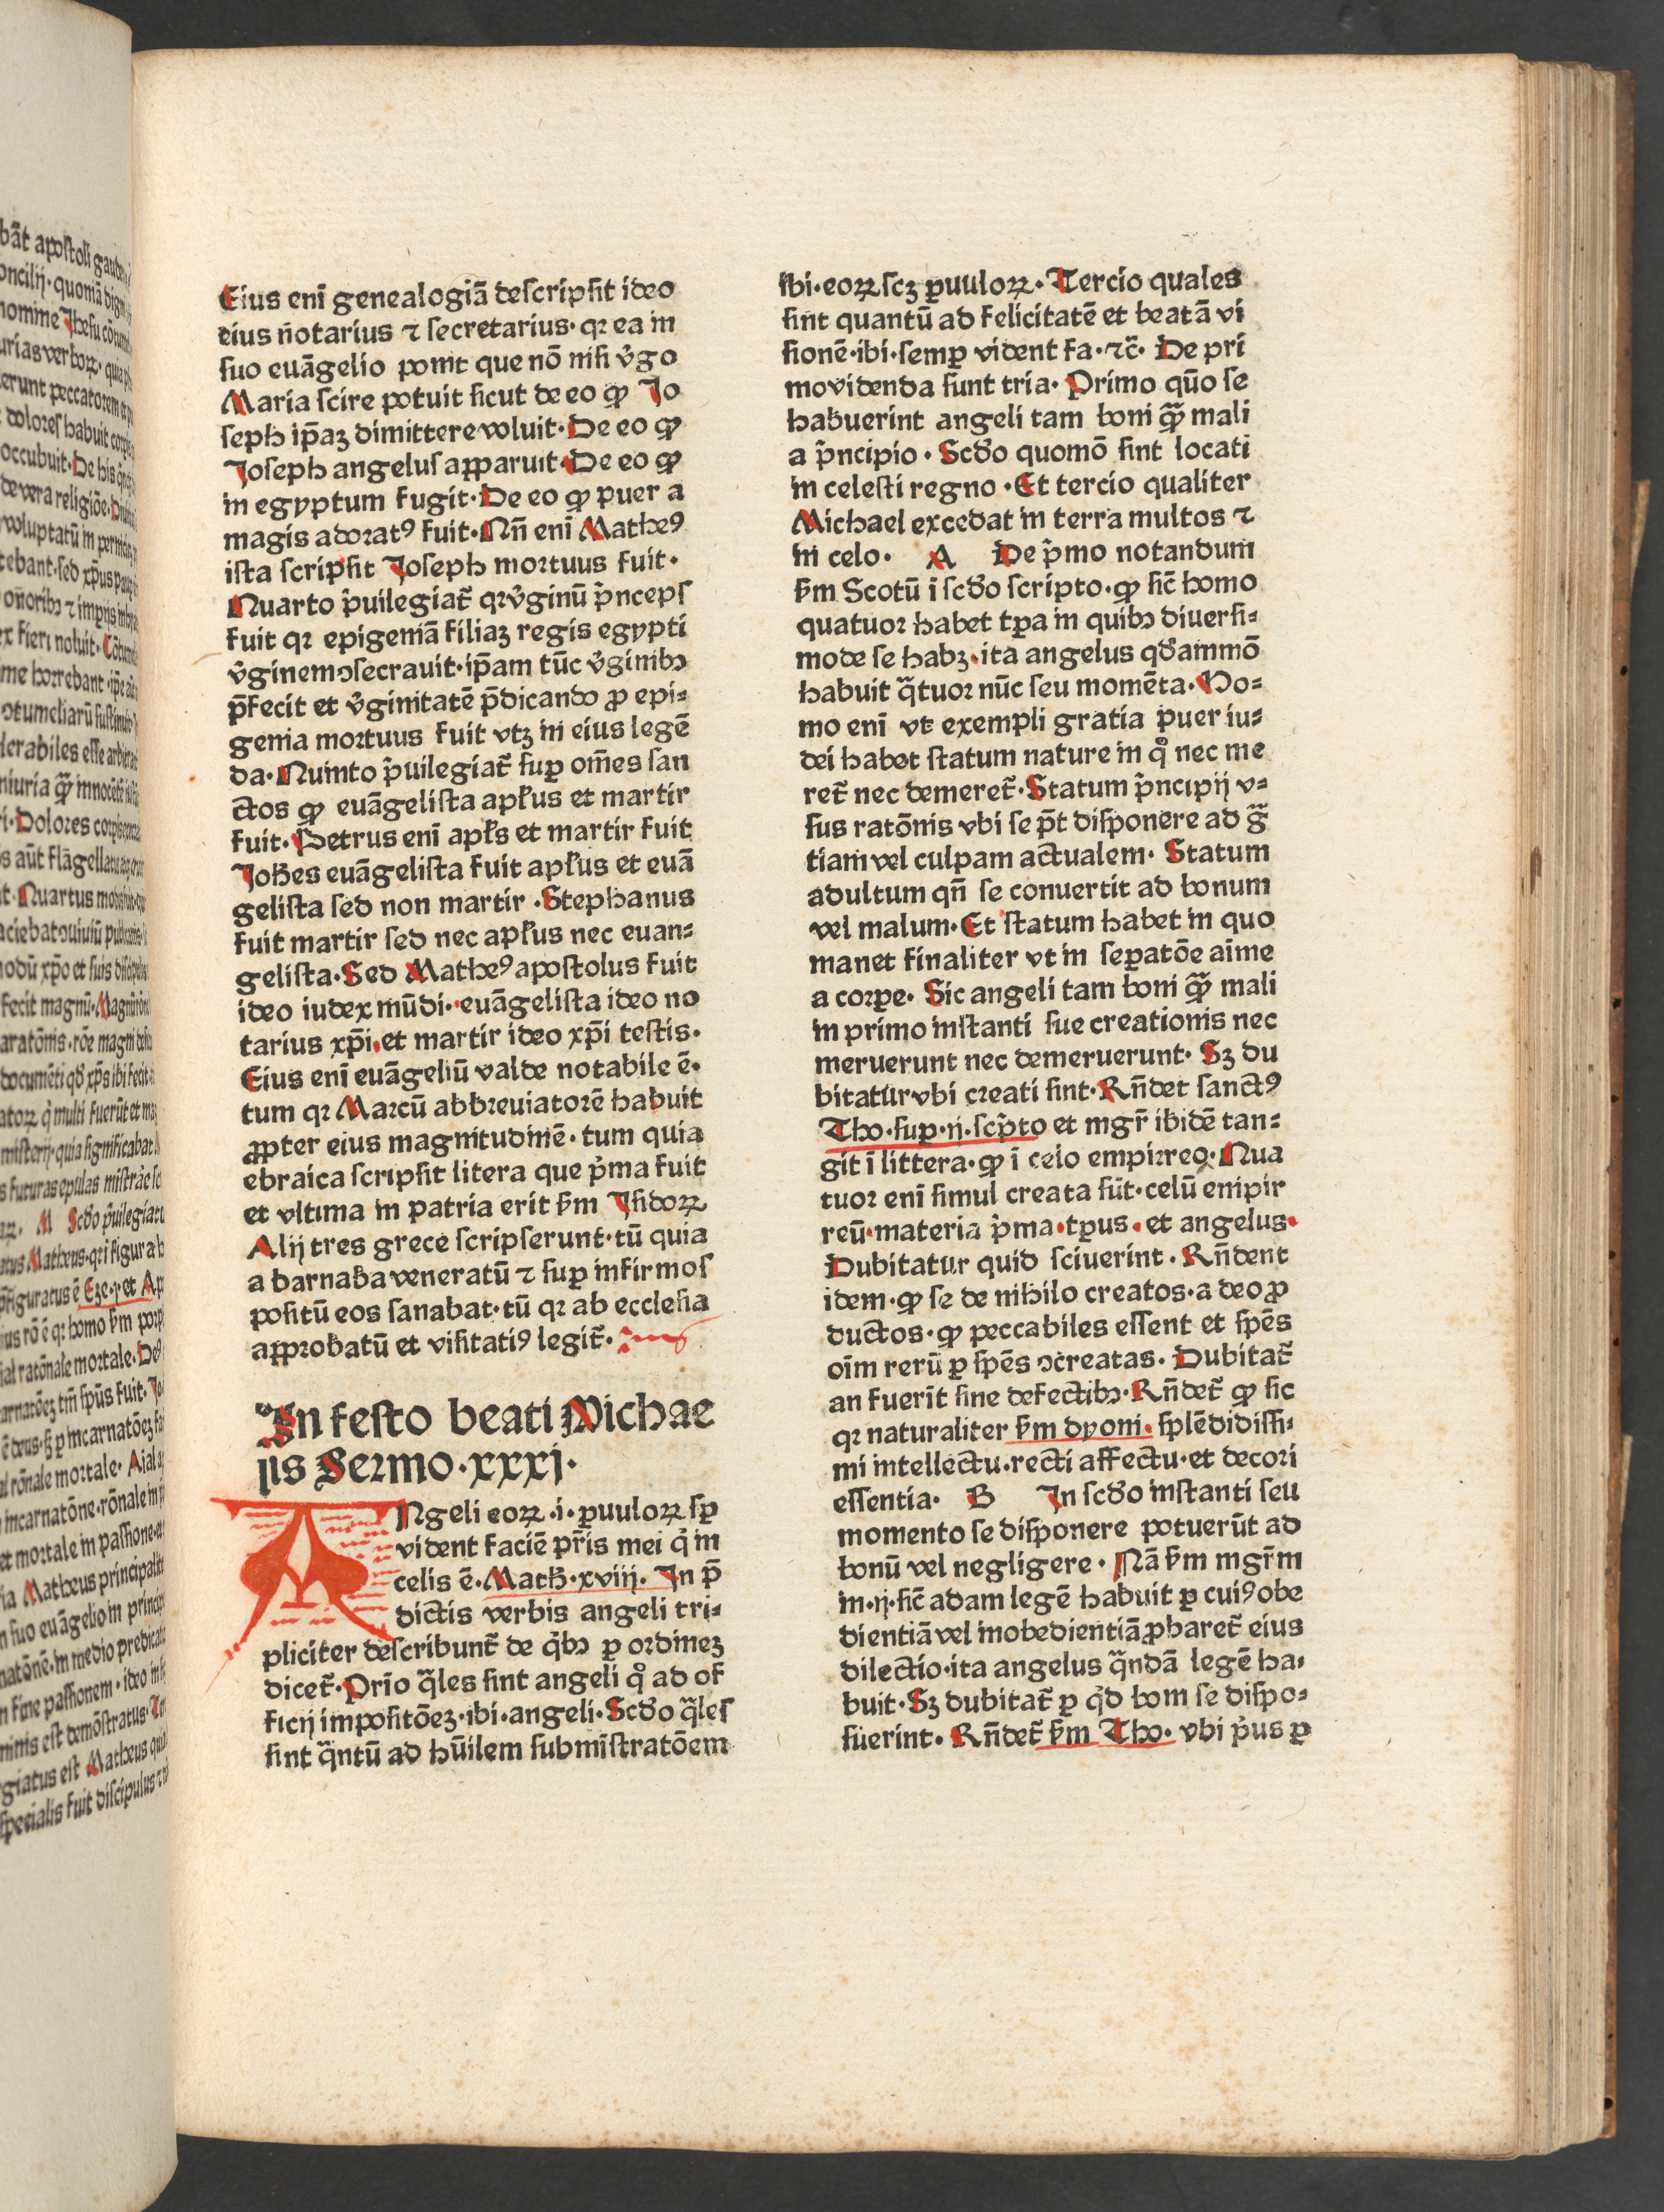 Eius enī genealogiā deſcripſit ideo
eius ñotarius ⁊ ſecretarius· qꝛ ea in
ſuo euāgelio ponit que nō niſi v̓go
Maria ſcire potuit ſicut de eo ꝙ Jo
ſeph ip̄aꝫ dimittere voluit· De eo ꝙ
Joſeph angeluſ apparuit· De eo ꝙ
in egyptum fugit· De eo ꝙ puer a
magis adoꝛatꝰ fuit· Nn̄ enī Matheꝰ
iſta ſcripſit Joſeph moꝛtuus fuit·
Nuarto p̓uilegiat̄ qꝛ v̓ginū p̓ncepſ
fuit qꝛ epigeniā filiaꝫ regis egypti
v̓ginem ↄſecrauit· ip̄am tūc v̓ginibꝫ
p̄fecit et v̓ginitatē p̄dicando ꝓ epi⸗
genia moꝛtuus fuit vtꝫ in eius legē
da· Nuinto p̓uilegiat̄ ſuꝑ om̄es ſan
ctos ꝙ euāgeliſta apl̓us et martir
fuit· Petrus enī apl̓s et martir fuit
Joh̄es euāgeliſta fuit apl̓us et euā
geliſta ſed non martir · Stephanus
fuit martir ſed nec apl̓us nec euan⸗
geliſta· Sed Matheꝰ apoſtolus fuit
ideo iudex mūdi· euāgeliſta ideo no
tarius xp̄i· et martir ideo xp̄i teſtis·
Eius enī euāgeliū valde notabile ē·
tum qꝛ Marcū abbꝛeuiatoꝛē habuit
ꝓpter eius magnitudinē· tum quia
ebraica ſcripſit litera que p̓ma fuit
et vltima in patria erit ẜm Iſidoꝝ
Alij tres grece ſcripſerunt· tū quia
a barnaba veneratū ⁊ ſuꝑ infirmoſ
poſitū eos ſanabat· tū qꝛ ab eccleſia
appꝛobatū et viſitatiꝰ legit̄·
In feſto beati Michae
lis Sermo·xxxj·
ANgeli eoꝝ ·i· ꝑuuloꝝ ſꝑ
vident faciē pr̄is mei q̓ in
celis ē· Math̄·xviij· In p̄
dictis verbis angeli tri⸗
pliciter deſcribunt̄ de q̓bꝫ ꝑ oꝛdineꝫ
dicet̄· Prīo q̄les ſint angeli qͦ ad of
ficij impoſitōeꝫ· ibi· angeli· Scd̓o q̄leſ
ſint q̄ntū ad hūilem ſubmīſtratōem
ibi· eoꝝ ſcꝫ ꝑuuloꝝ· Tercio quales
ſint quantū ad felicitatē et beatā vi
ſionē· ibi· ſemꝑ vident fa· ⁊c̄· De pri
mo videnda ſunt tria· Primo qūo ſe
habuerint angeli tam boni ꝙ̄ mali
a p̓ncipio · Scd̓o quomō ſint locati
in celeſti regno · Et tercio qualiter
Michael excedat in terra multos ⁊
in celo· A De p̓mo notandum
ẜm Scotū ī ſcd̓o ſcripto· ꝙ ſic̄ homo
quatuoꝛ habet tꝑa in quibꝫ diuerſi⸗
mode ſe habꝫ· ita angelus qd̓ammō
habuit q̄tuoꝛ nūc ſeu momēta· Ho⸗
mo enī vt exempli gratia puer iu⸗
dei habet ſtatum nature in qͦ nec me
ret̄ nec demeret̄· Statum p̓ncipij v⸗
ſus ratōnis vbi ſe p̄t diſponere ad ḡ
tiam vel culpam actualem· Statum
adultum qn̄ ſe conuertit ad bonum
vel malum· Et ſtatum habet in quo
manet finaliter vt in ſeꝑatōe aīme
a coꝛꝑe· Sic angeli tam boni ꝙ̄ mali
in primo inſtanti ſue creationis nec
meruerunt nec demeruerunt· Sꝫ du
bitatur vbi creati ſint· Rn̄det ſanctꝰ
Tho· ſuꝑ·ij· ſcp̓to et mgr̄ ibidē tan⸗
git ī littera· ꝙ ī celo empirreo· Nua
tuoꝛ enī ſimul creata ſūt· celū empir
reū· materia p̓ma· tꝑus· et angelus·
Dubitatur quid ſciuerint· Rn̄dent
idem· ꝙ ſe de nihilo creatos· a deo ꝓ
ductos· ꝙ peccabiles eſſent et ſpēs
oīm rerū ꝑ ſpēs ↄcreatas· Dubitat̄
an fuerīt ſine defectibꝫ· Rn̄det̄ ꝙ ſic
qꝛ naturaliter ẜm dyoni· ſplēdidiſſi⸗
mi intellectu· recti affectu· et decoꝛi
eſſentia· B In ſcd̓o inſtanti ſeu
momento ſe diſponere potuerūt ad
bonū vel negligere· Nā ẜm mgr̄m
in·ij· ſic̄ adam legē habuit ꝑ cuiꝰ obe
dientiā vel inobedientiā ꝓbaret̄ eius
dilectio· ita angelus q̄ndā legē ha⸗
buit· Sꝫ dubitat̄ ꝑ q̓d bom ſe diſpo⸗
ſuerint· Rn̄det̄ ẜm Tho· vbi p̓us ꝑ